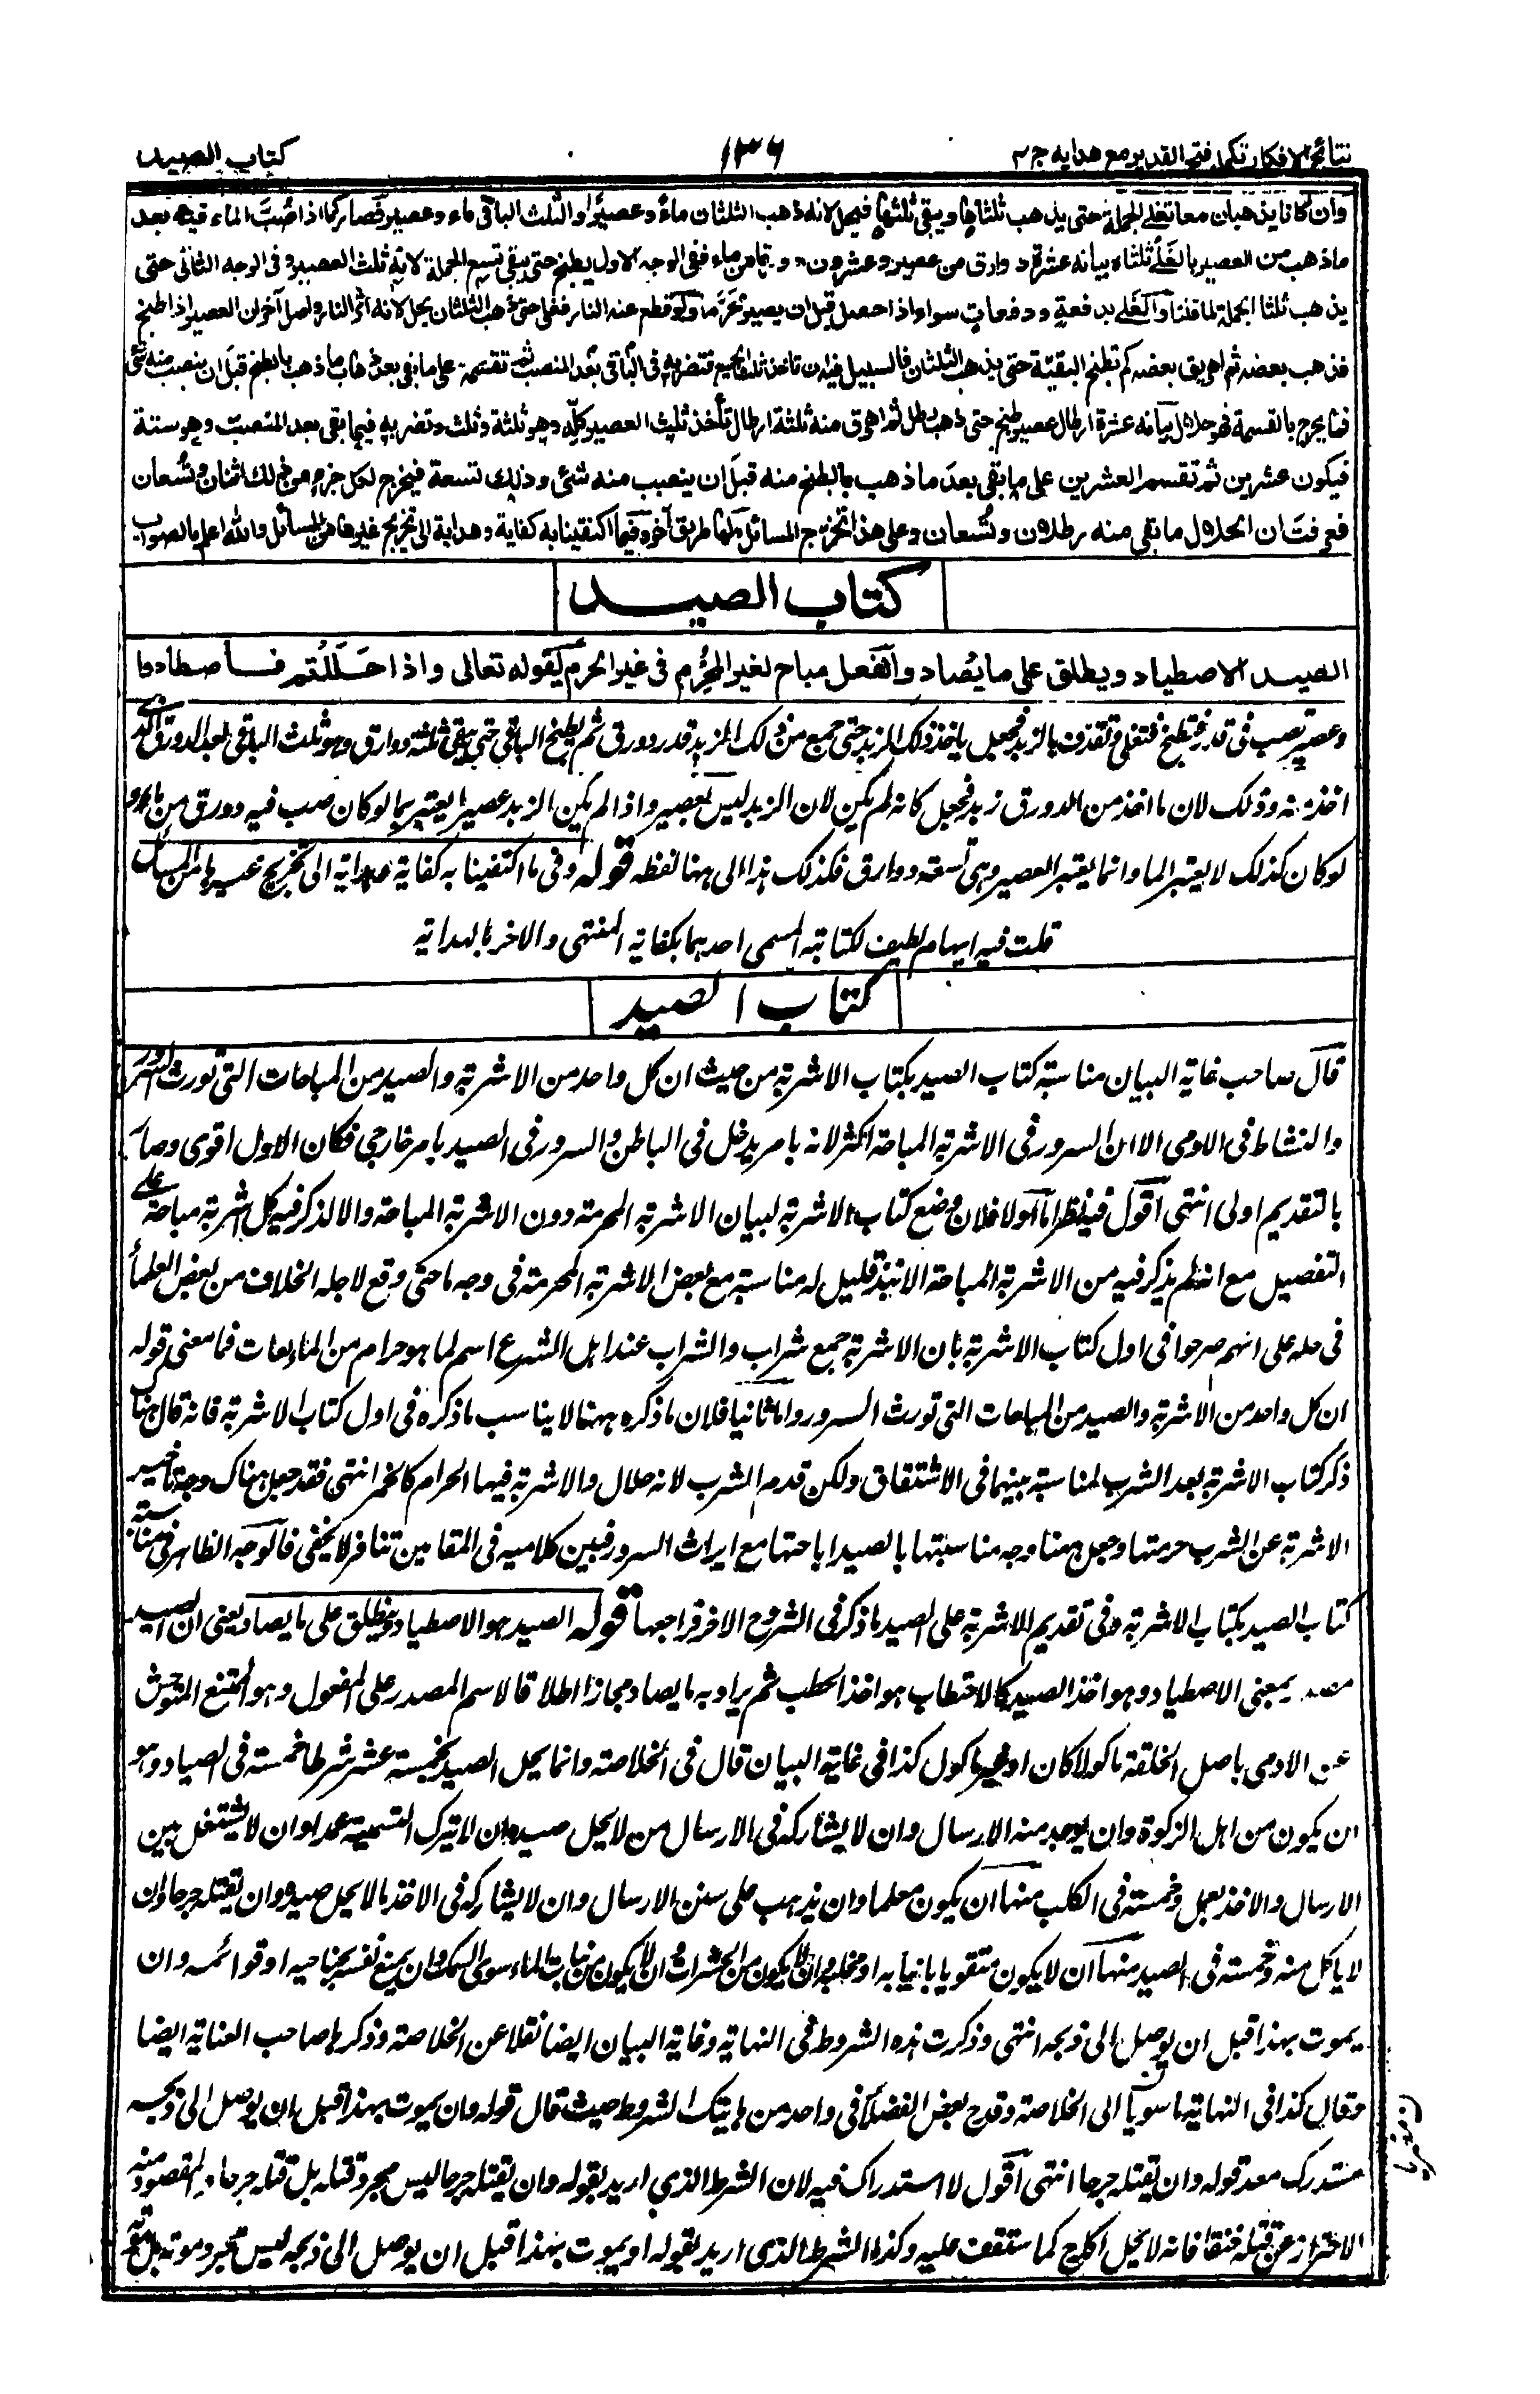 نتائج الافكار تكملہ فتح القدير مع هدايه ج ٨
١٣٦
كتاب الصيد
وان كانا يذهبان معا تغلى الجملة حتى يذهب ثلثاها ويبقى ثلثها فيحل لانه ذهب الثلثان ماءً وعصيرا والثلث الباقى ماء وعصير فصار كما اذا صُبَّ الماء فيه بعد
ما ذهب من العصير بالغلى ثلثاه بيانه عشرة دوارق من عصير وعشرون دورقا من ماء ففى الوجه الاول يطبخ حتى يبقى تسع الجملة لانه ثلث العصير وفى الوجه الثانى حتى
يذهب ثلثا الجملة لما قلنا والغلى بدفعة ودفعات سواء اذا حصل قبل ان يصير محرّما ولو قطع عنه النار فغلى حتى ذهب الثلثان يحل لانه اثر النار واصل آخر ان العصير اذا طبخ
فذهب بعضه ثم اهريق بعضه كم تطبخ البقيّة حتى يذهب الثلثان فالسبيل فيه ان تاخذ ثلث الجميع فتضربه فى الباقى بعد المنصب ثم تقسمه على ما بقى بعد ذهاب ما ذهب بالطبخ قبل ان ينصب منه شئ
فما يخرج بالقسمة فهو حلال بيانه عشرة ارطال عصير طبخ حتى ذهب رطل ثم اهرق منه ثلثة ارطال تأخذ ثلث العصير كلّه وهو ثلثة وثلث وتضربه فيما بقى بعد المنصبّ وهو ستة
فيكون عشرين ثم تقسم العشرين على ما بقى بعد ما ذهب بالطبخ منه قبل ان ينصب منه شئ وذلك تسعة فيخرج لكل جزء من ذلك اثنان وتُسعان
فعرفت ان الحلال ما بقى منه رطلان وتُسعان وعلى هذا تخرّج المسائل ولها طريق آخر وفيما اكتفينا به كفاية وهداية الى تخريج غيرها من المسائل والله اعلم بالصواب
كتاب الصيد
الصيد الاصطياد ويطلق على ما يُصاد والفعل مباح لغير المُحْرِم فى غير الحرم لقوله تعالى واذا حَلَلْتُم فاصطادوا
وعصير تصب فى قدر فتطبخ فتغلى وتقذف بالزبد فجعل ياخذ ذلك الزبد حتى جمع من ذلك الزبد قدر دورق ثم يطبخ الباقى حتى يبقى ثلثة دوارق وهو ثلث الباقى بعد الدورق الذى
اخذ منه وذلك لان ما اخذ من الدورق زبد فجعل كانه لم يكن لان الزبد ليس بعصير واذا لم يكن الزبد عصيرا يعتبر بما لو كان صب فيه دورق من ماء ولو
لو كان كذلك لا يعتبر الماء وانما يعتبر العصير وهى تسعة دوارق فكذلك هذا الى ههنا لفظه قوله وفى ما اكتفينا به كفاية وهداية الى تخريج غيرها من المسائل
قلت فيه ايهام لطيف لكتابيه المسمى احدهما بكفاية المنتهى والآخر بالهداية
كتاب الصيد
قال صاحب غاية البيان مناسبة كتاب الصيد بكتاب الاشربة من حيث ان كل واحد من الاشربة والصيد من المباحات التى تورث السرور
والنشاط فى الآدمى الا ان السرور فى الاشربة المباحة اكثر لانه بامر يدخل فى الباطن والسرور فى الصيد بامر خارجى فكان الاول اقوى وصار
بالتقديم اولى انتهى اقول فيه نظر اما اولا فلان وضع كتاب الاشربة لبيان الاشربة المحرمة دون الاشربة المباحة والا لذكر فيه كل اشربة مباحة على
التفصيل مع انه لم يذكر فيه من الاشربة المباحة الا نبذ قليل له مناسبة مع بعض الاشربة المحرمة فى وجه ما حتى وقع لاجله الخلاف من بعض العلماء
فى حله على انهم صرحوا فى اول كتاب الاشربة بان الاشربة جمع شراب والشراب عند اهل الشرع اسم لما هو حرام من المائعات فما معنى قوله
ان كل واحد من الاشربة والصيد من المباحات التى تورث السرور واما ثانيا فلان ما ذكره ههنا لا يناسب ما ذكره فى اول كتاب الاشربة فانه قال هناك
ذكر كتاب الاشربة بعد الشرب لمناسبة بينهما فى الاشتقاق ولكن قدم الشرب لانه حلال والاشربة فيها الحرام كالخمر انتهى فقد جعل هناك وجه تاخير
الاشربة عن الشرب حرمتها وجعل ههنا وجه مناسبتها بالصيد اباحتها مع ايراث السرور فبين كلاميه فى المقامين تنافر لا يخفى فالوجه الظاهر فى مناسبة
كتاب الصيد بكتاب الاشربة وفى تقديم الاشربة على الصيد ما ذكر فى الشروح الاخر فراجعها قوله الصيد هو الاصطياد ويطلق على ما يصاد يعنى ان الصيد
مصدر بمعنى الاصطياد وهو اخذ الصيد كالاحتطاب هو اخذ الحطب ثم يراد به ما يصاد مجازا اطلاقا لاسم المصدر على المفعول وهو الممتنع المتوحش
عن الآدمى باصل الخلقة ماكولا كان او غير ماكول كذا فى غاية البيان قال فى الخلاصة وانما يحل الصيد بخمسة عشر شرطا خمسة فى الصياد وهو
ان يكون من اهل الزكوة وان يوجد منه الارسال وان لا يشاركه فى الارسال من لا يحل صيده وان لا يترك التسمية عمدا وان لا يشتغل بين
الارسال والاخذ بعمل وخمسة فى الكلب منها ان يكون معلما وان يذهب على سنن الارسال وان لا يشاركه فى الاخذ ما لا يحل صيده وان يقتله جرحا وان
لا ياكل منه وخمسة فى الصيد منها ان لا يكون متقويا بانيابه او مخلبه وان لا يكون من الحشرات وان لا يكون من نبات الماء سوى السمك وان يمنع نفسه بجناحيه او قوائمه وان
يموت بهذا قبل ان يوصل الى ذبحه انتهى وذكرت هذه الشروط فى النهاية وغاية البيان ايضا نقلا عن الخلاصة وذكرها صاحب العناية ايضا
وقال كذا فى النهاية منسوبا الى الخلاصة وقدح بعض الفضلاء فى واحد من هاتيك الشروط حيث قال قوله وان يموت بهذا قبل ان يوصل الى ذبحه
مستدرك بعد قوله وان يقتله جرحا انتهى اقول لا استدراك فيه لان الشرط الذى اريد بقوله وان يقتله جرحا ليس مجرد قتله بل قتله جرحا والمقصود منه
الاحتراز عن قتله خنقا فانه لا يحل اكله كما ستقف عليه وكذا الشرط الذى اريد بقوله او يموت بهذا قبل ان يوصل الى ذبحه ليس مجرد موته بل موته